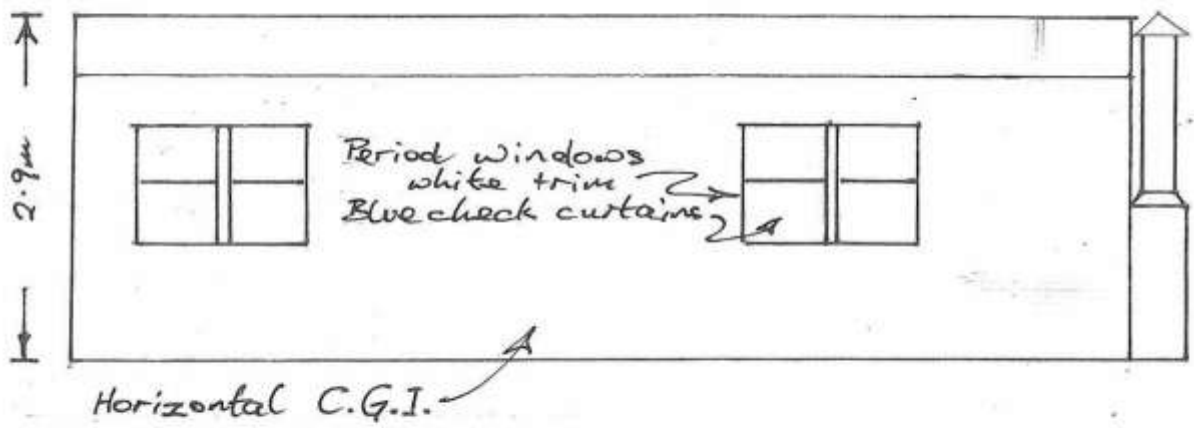 2.9m
Period windows
white trim
Blue check curtains
Horizontal C.G.I.